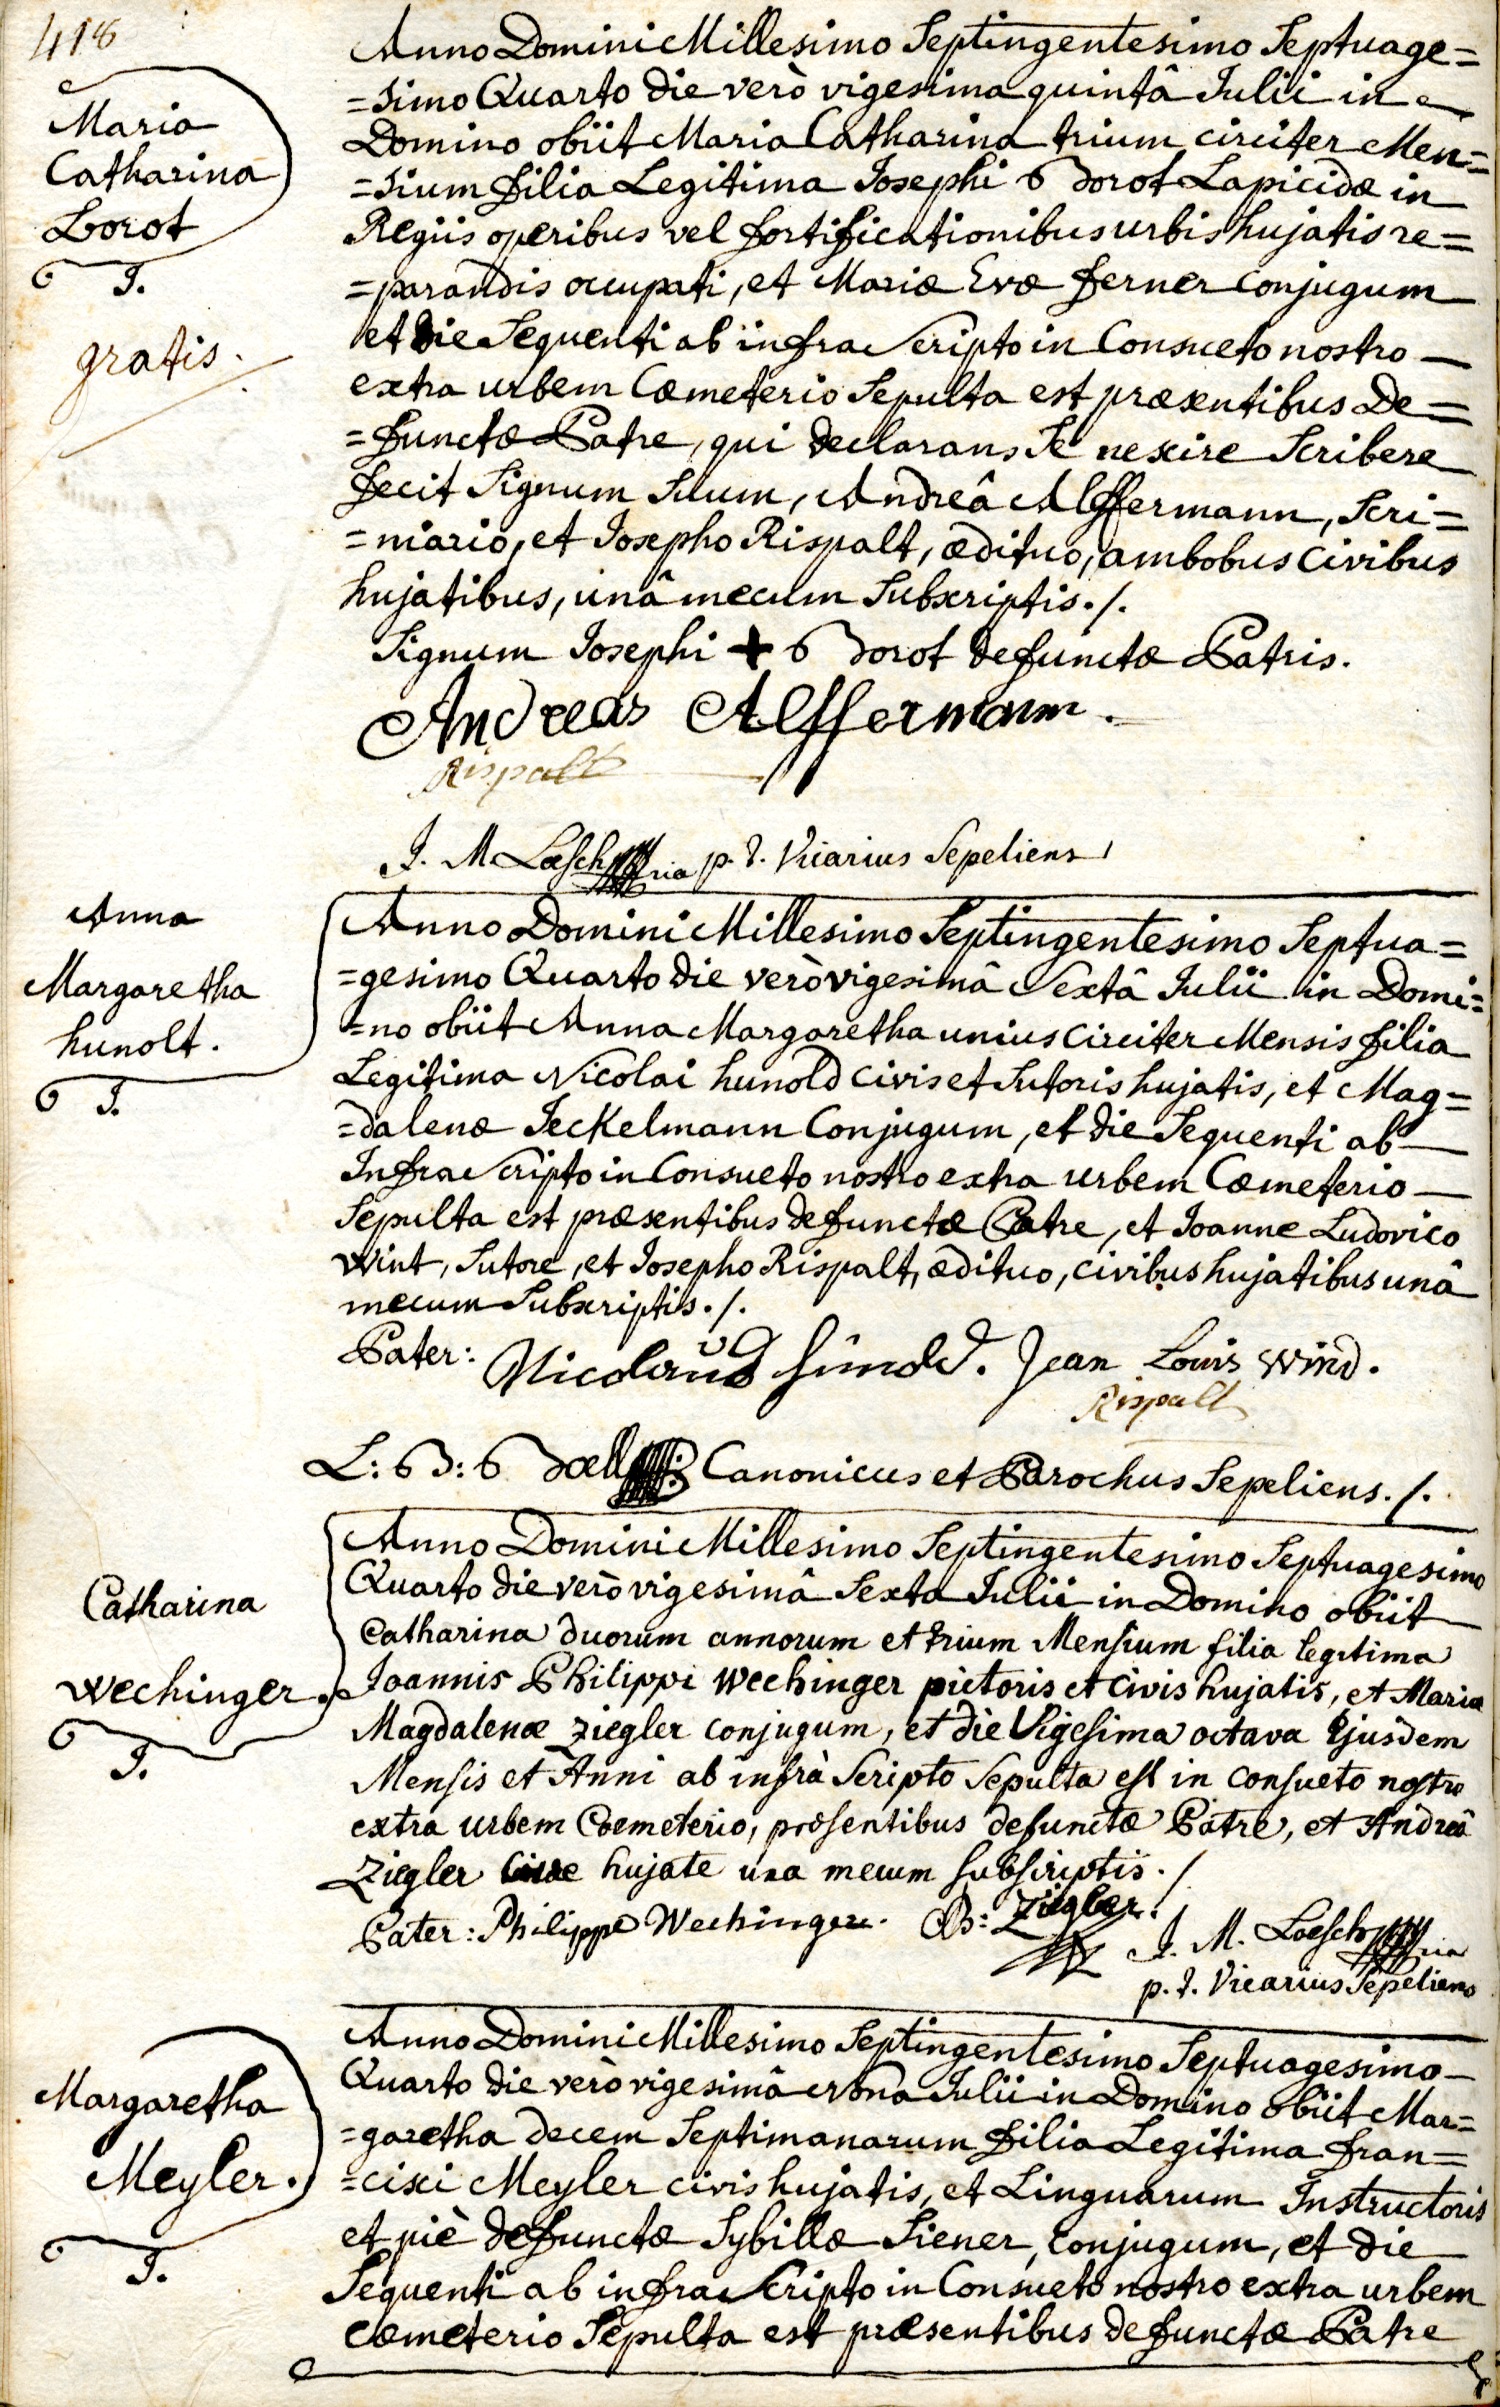 418
Maria
Catharina
Borot
J.
gratis.
Anno Domini Millesimo Septingentesimo Septuage=
=simo Quarto die verò vigesima quintâ Julii in
Domino obiit Maria Catharina trium circiter Men=
=sium filia Legitima Josephi Borot Lapicidæ in
Regiis operibus vel fortificationibus urbis hujatis re=
=parandis occupati, et Mariæ Evæ ferner conjugum
et die Sequenti ab infra Scripto in Consueto nostro
extra urbem Cœmeterio Sepulta est præsentibus De=
=functæ Patre, qui declarans Se nescire Scribere
fecit Signum Suum, Andreâ Alffermann, Scri=
=niario, et Josepho Rispalt, ædituo, ambobus civibus
hujatibus, unâ mecum Subscriptis./.
Signum Josephi + Borot defunctæ Patris.
Andreas Alffermann.
Rispalt
J. M. Loesch p. t. Vicarius Sepeliens
Anna
Margaretha
hunolt.
J.
Anno Domini Millesimo Septingentesimo Septua=
=gesimo Quarto die verò vigesimâ Sextâ Julii in Domi=
=no obiit Anna Margaretha unius circiter Mensis filia
Legitima Nicolai hunold civis et Sutoris hujatis, et Mag=
=dalenæ Jeckelmann Conjugum, et die Sequenti ab
Infra Scripto in Consueto nostro extra urbem Cœmeterio
Sepulta est præsentibus defunctæ Patre, et Joanne Ludovico
Wint, Sutore, et Josepho Rispalt, ædituo, civibus hujatibus unâ
mecum Subscriptis./.
Pater: Nicolaus hunold. Jean Louis Wind.
Rispalt
L: B: Boell Canonicus et Parochus Sepeliens./.
Catharina
Wechinger.
J.
Anno Domini Millesimo Septingentesimo Septuagesimo
Quarto die verò vigesimâ Sexta Julii in Domino obiit
Catharina duorum annorum et trium Mensium filia legitima
Joannis Philippi Wechinger pictoris et civis hujatis, et Mariæ
Magdalenæ Ziegler conjugum, et die Vigesima octava Ejusdem
Mensis et Anni ab infrà Scripto Sepulta est in consueto nostro
extra urbem Cœmeterio, præsentibus defunctæ Patre, et Andreâ
Ziegler Cive hujate una mecum subscriptis./
Pater: Philippe Wechinger. Ziegler.
J. M. Loesch
p. t. Vicarius Sepeliens
Margaretha
Meyler.
J.
Anno Domini Millesimo Septingentesimo Septuagesimo
Quarto die verò vigesimâ nona Julii in Domino obiit Mar=
=garetha decem Septimanarum filia Legitima fran=
=cisci Meyler civis hujatis, et Linguarum Instructoris
et piè defunctæ Sybillæ Siener, conjugum, et die
Sequenti ab infra Scripto in Consueto nostro extra urbem
cœmeterio Sepulta est præsentibus defunctæ Patre